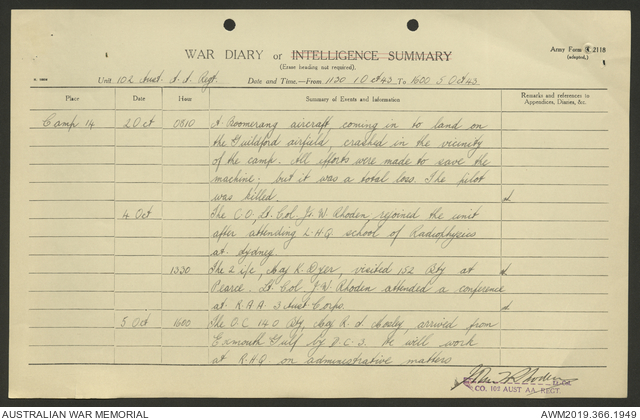 WAR DIARY or INTELLIGENCE SUMMARY
(Erase heading not required).
Army Form C. 2118
(adapted.)
Unit 102 Aust. A.A. Regt. Date and Time—From 1130 1 Oct 43 To 1600 5 Oct 43
Place Date Hour Summary of Events and Information Remarks and references in
Appendices, Diaries, &c.
Camp 14 2 Oct 0810 A Boomerang aircraft, coming in to land on
the Guildford airfield, crashed in the vicinity
of the camp. All efforts were made to save the
machine; but it was a total loss. The pilot
was killed.
4 Oct The CO, Lt. Col. J. W. Rhoden, rejoined the unit
after attending L.H.Q school of Radiophysics
at Sydney.
1330 The 2 i/c, Maj K. Dyer, visited 152 Bty at
Pearce. Lt. Col. J. W. Rhoden attended a conference
at R.A.A 3 Aust Corps.
5 Oct 1600 The O.C 140 Bty, Maj R. A. Mosley, arrived from
Exmouth Gulf by D.C.3. He will work
at R.H.Q on administrative matters
John W Rhoden
CO. 102 AUST AA. REGT.
AUSTRALIAN WAR MEMORIAL AWM2019.366.1949